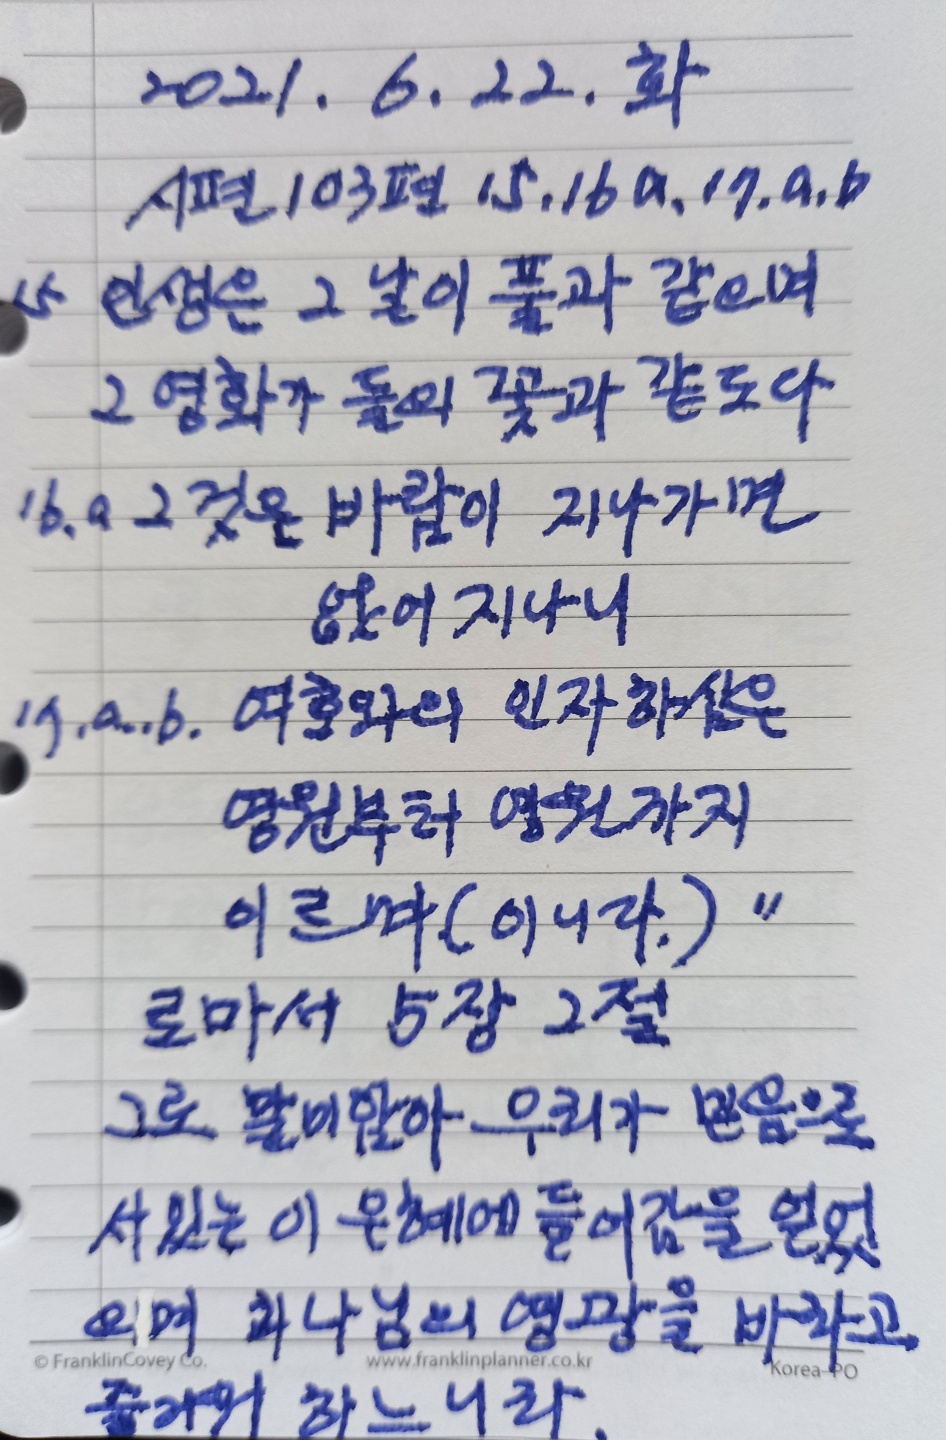 2021. 6. 22. 화
시편 103편 15. 16 a. 17. a. b
15 인생은 그 날이 풀과 같으며
그 영화가 들의 꽃과 같도다
16. a 그것은 바람이 지나가면
없어 지나니
17. a. b. 여호와의 인자하심은
영원부터 영원까지
이르며 (이니라.) "
로마서 5장 2절
그로 말미암아 우리가 믿음으로
서있는 이 은혜에 들어감을 얻었
으며 하나님의 영광을 바라고
© FranklinCovey Co. www.franklinplanner.co.kr Korea-PO
즐거워 하느니라.